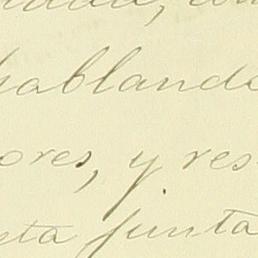 hablando
ores, y res
sta junta